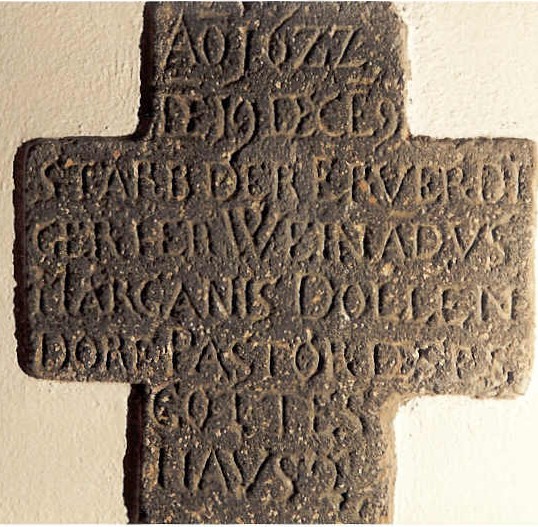 AÕ 1622
DĒ 19 DECĒ 9
STARB DER ERVERDI
GER HER WEINADVS
MARGANIS DOLLEN
DORF PASTOR DESES
GOTTES
HAVS